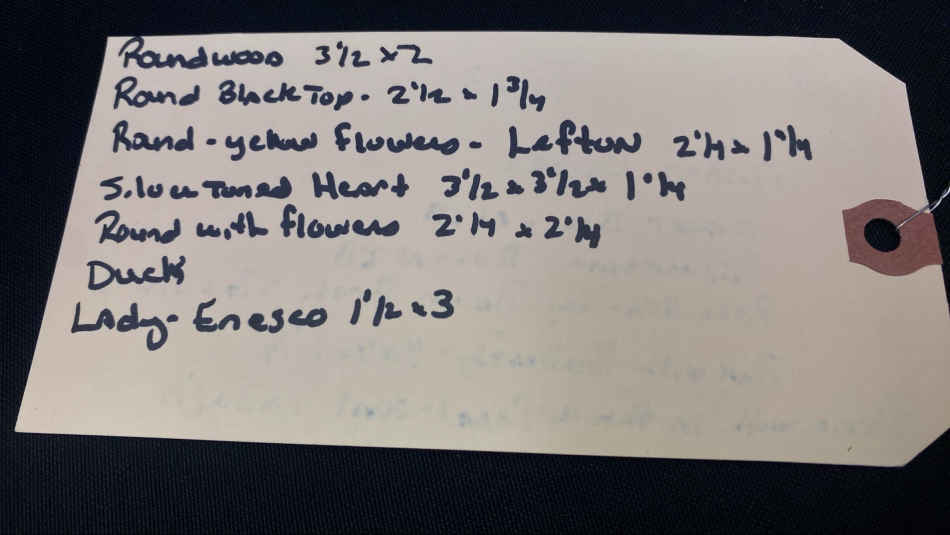 Round wood 3 1/2 x 2
Round Black Top - 2 1/2 x 1 3/4
Round - yellow flowers - Lefton 2 1/4 x 1 1/4
Silver Toned Heart 3 1/2 x 3 1/2 x 1 1/4
Round with flowers 2 1/4 x 2 1/4
Duck
Lady - Enesco 1 1/2 x 3